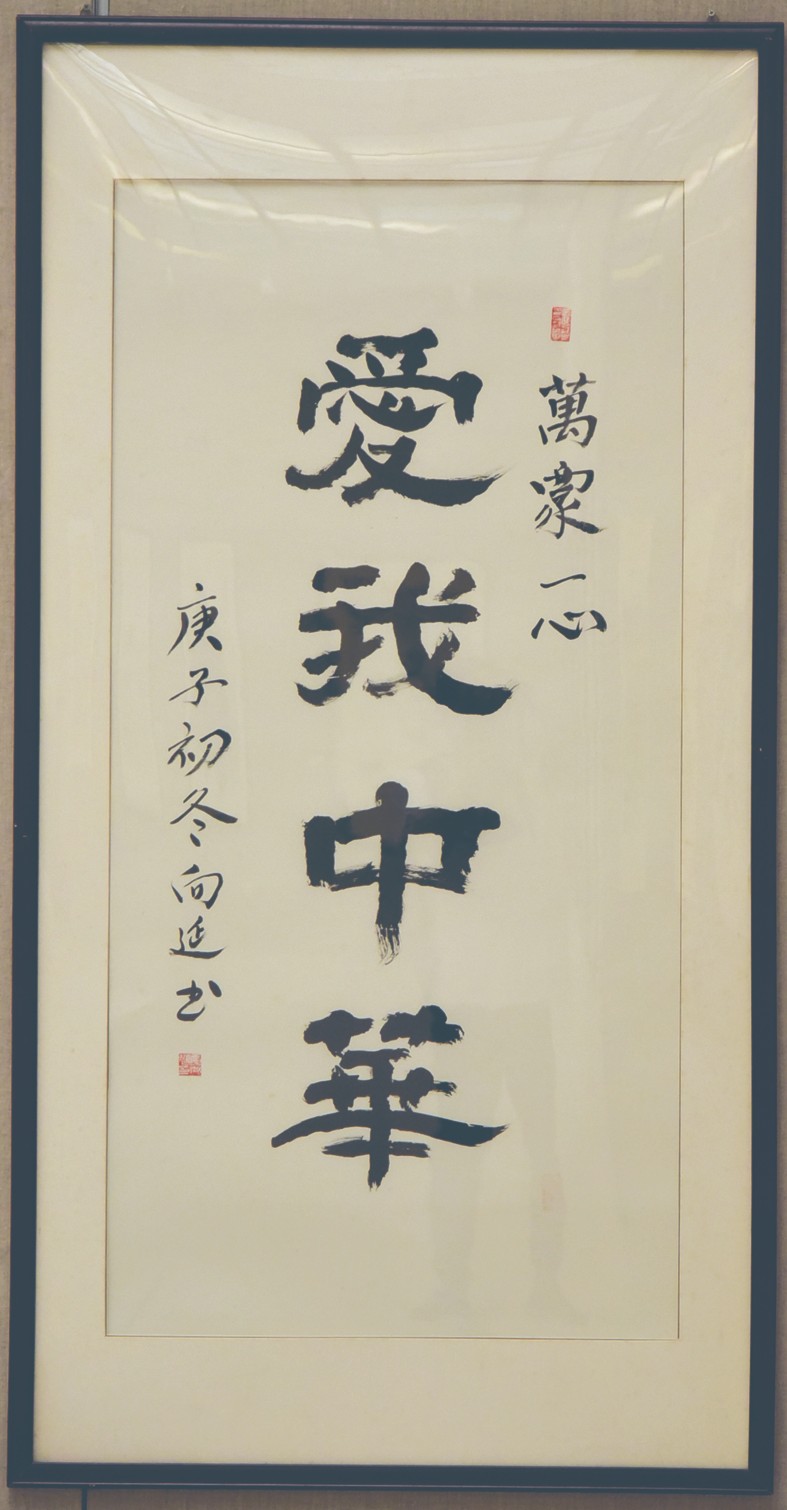 萬衆一心
愛我中華
庚子初冬向延书